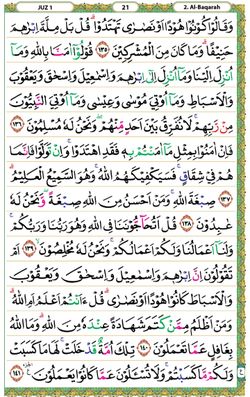 JUZ 1 21 2. Al-Baqarah
وَقَالُوْا كُوْنُوْا هُوْدًا اَوْ نَصٰرٰى تَهْتَدُوْا ؕ قُلْ بَلْ مِلَّةَ اِبْرٰهٖمَ
حَنِيْفًا ؕ وَمَا كَانَ مِنَ الْمُشْرِكِيْنَ ﴿١٣٥﴾ قُوْلُوْٓا اٰمَنَّا بِاللّٰهِ وَمَآ
اُنْزِلَ اِلَيْنَا وَمَآ اُنْزِلَ اِلٰٓى اِبْرٰهٖمَ وَاِسْمٰعِيْلَ وَاِسْحٰقَ وَيَعْقُوْبَ
وَالْاَسْبَاطِ وَمَآ اُوْتِيَ مُوْسٰى وَعِيْسٰى وَمَآ اُوْتِيَ النَّبِيُّوْنَ
مِنْ رَّبِّهِمْ ۚ لَا نُفَرِّقُ بَيْنَ اَحَدٍ مِّنْهُمْ ۖ وَنَحْنُ لَهٗ مُسْلِمُوْنَ ﴿١٣٦﴾
فَاِنْ اٰمَنُوْا بِمِثْلِ مَآ اٰمَنْتُمْ بِهٖ فَقَدِ اهْتَدَوْا ۚ وَاِنْ تَوَلَّوْا فَاِنَّمَا
هُمْ فِيْ شِقَاقٍ ۚ فَسَيَكْفِيْكَهُمُ اللّٰهُ ۚ وَهُوَ السَّمِيْعُ الْعَلِيْمُ ؕ
﴿١٣٧﴾ صِبْغَةَ اللّٰهِ ۚ وَمَنْ اَحْسَنُ مِنَ اللّٰهِ صِبْغَةً ۖ وَّنَحْنُ لَهٗ
عٰبِدُوْنَ ﴿١٣٨﴾ قُلْ اَتُحَآجُّوْنَنَا فِي اللّٰهِ وَهُوَ رَبُّنَا وَرَبُّكُمْ ۚ
وَلَنَآ اَعْمَالُنَا وَلَكُمْ اَعْمَالُكُمْ ۚ وَنَحْنُ لَهٗ مُخْلِصُوْنَ ۙ ﴿١٣٩﴾ اَمْ
تَقُوْلُوْنَ اِنَّ اِبْرٰهٖمَ وَاِسْمٰعِيْلَ وَاِسْحٰقَ وَيَعْقُوْبَ
وَالْاَسْبَاطَ كَانُوْا هُوْدًا اَوْ نَصٰرٰى ؕ قُلْ ءَاَنْتُمْ اَعْلَمُ اَمِ اللّٰهُ ؕ
وَمَنْ اَظْلَمُ مِمَّنْ كَتَمَ شَهَادَةً عِنْدَهٗ مِنَ اللّٰهِ ؕ وَمَا اللّٰهُ
بِغَافِلٍ عَمَّا تَعْمَلُوْنَ ﴿١٤٠﴾ تِلْكَ اُمَّةٌ قَدْ خَلَتْ ۚ لَهَا مَا كَسَبَتْ
وَلَكُمْ مَّا كَسَبْتُمْ ۚ وَلَا تُسْـَٔلُوْنَ عَمَّا كَانُوْا يَعْمَلُوْنَ ﴿١٤١﴾